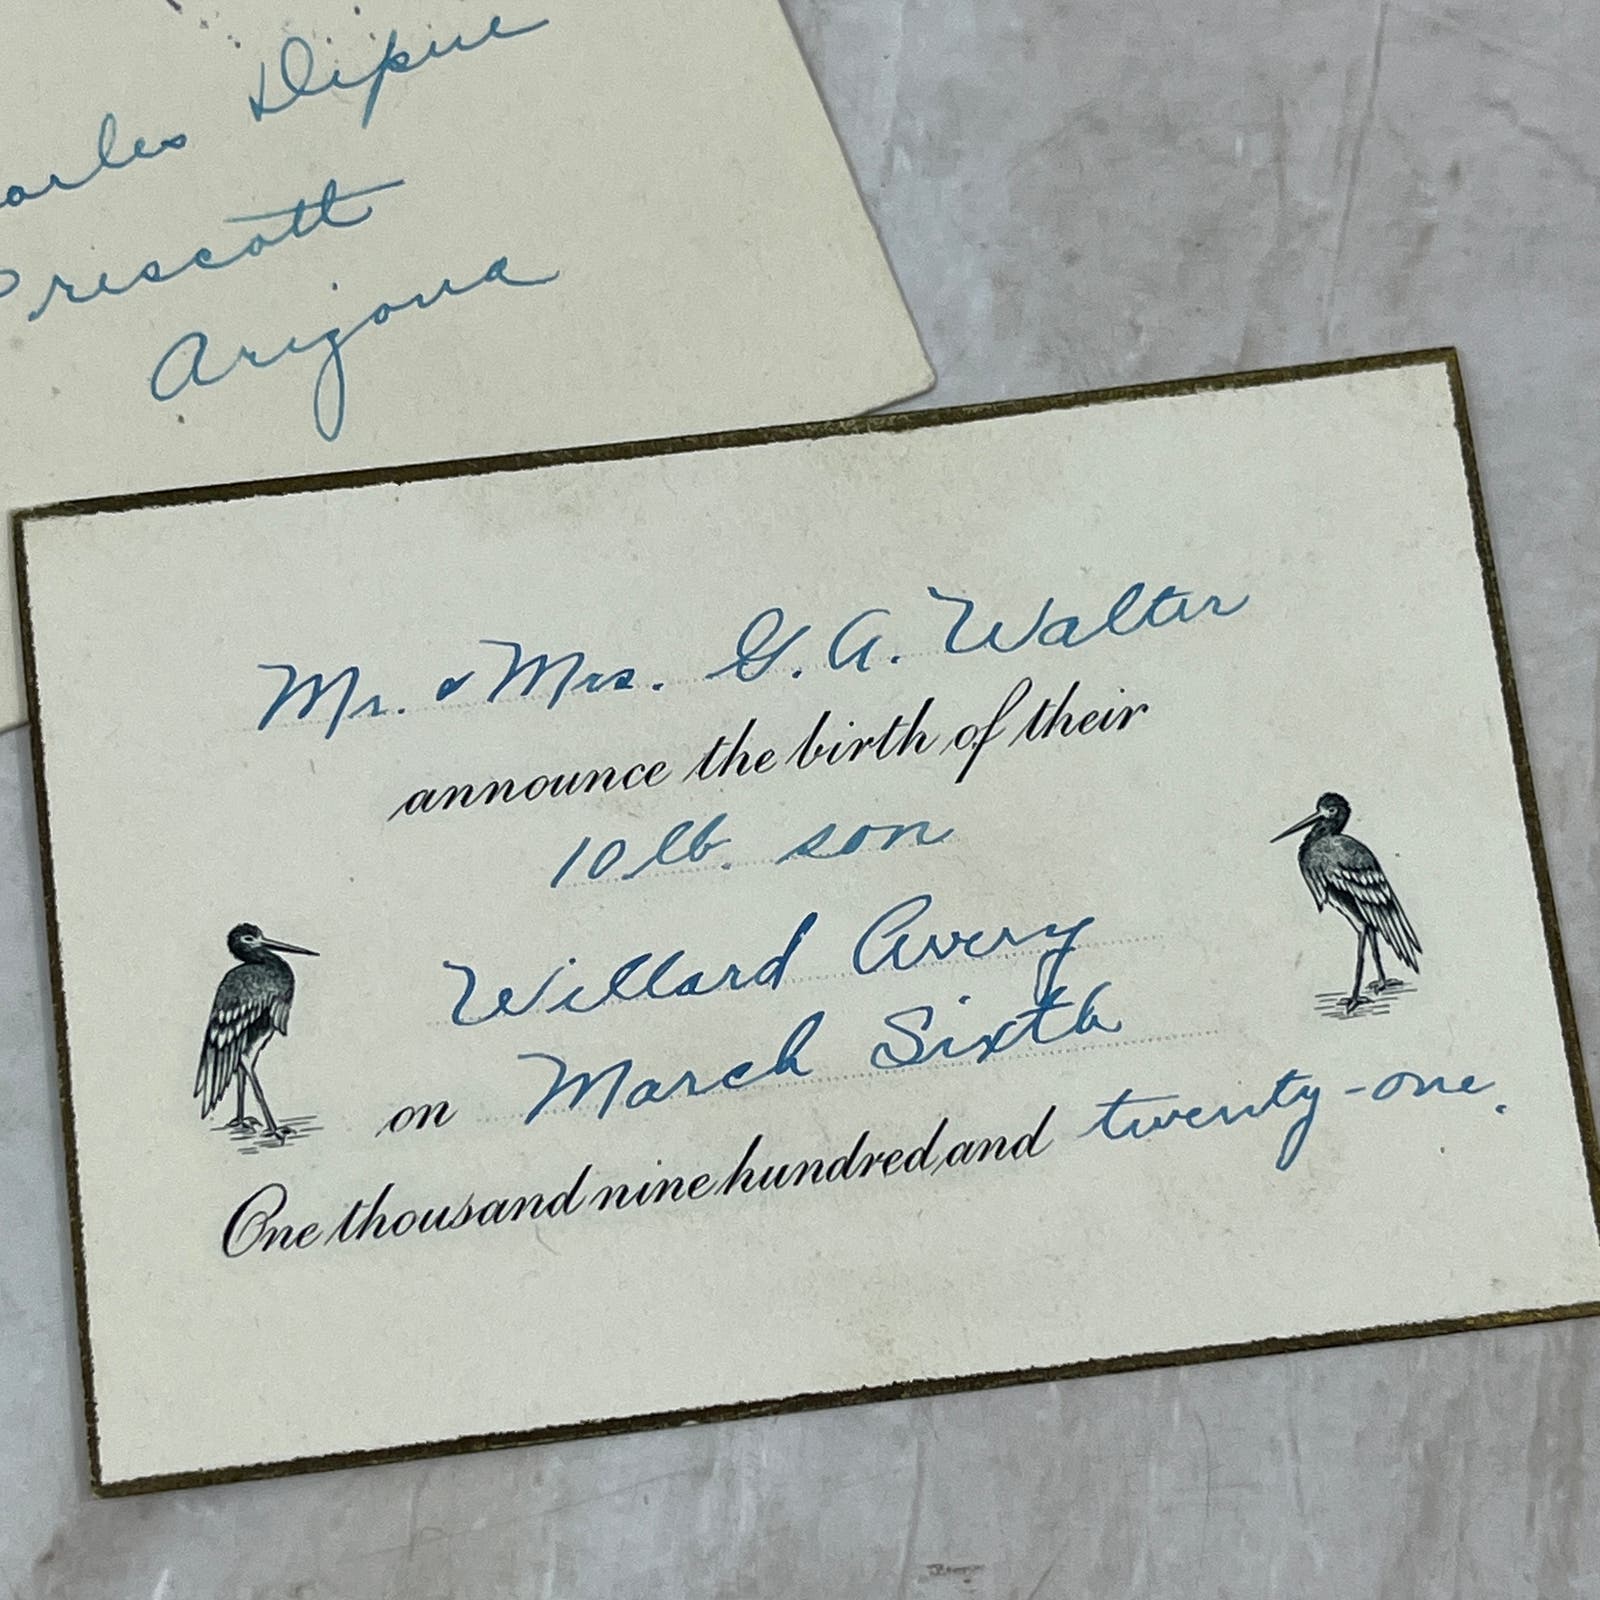 Dipue
Prescott
Arizona
Mr. & Mrs. G. A. Walter
announce the birth of their
10 lb. son
Willard Avery
on March Sixth
One thousand nine hundred and twenty-one.